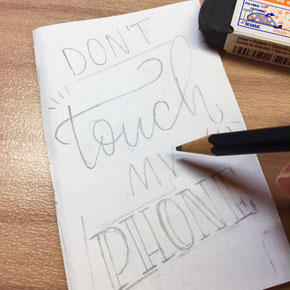 DON'T
touch
MY
PHONE